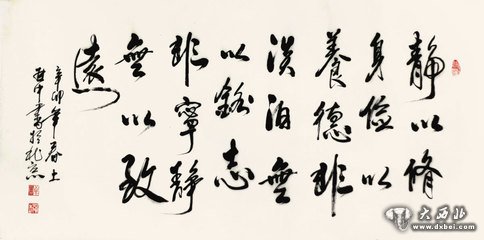 静以修
身俭以
養德非
淡泊無
以銘志
非寧静
無以致
遠
辛卯年春土
大西北
www.dxbei.com